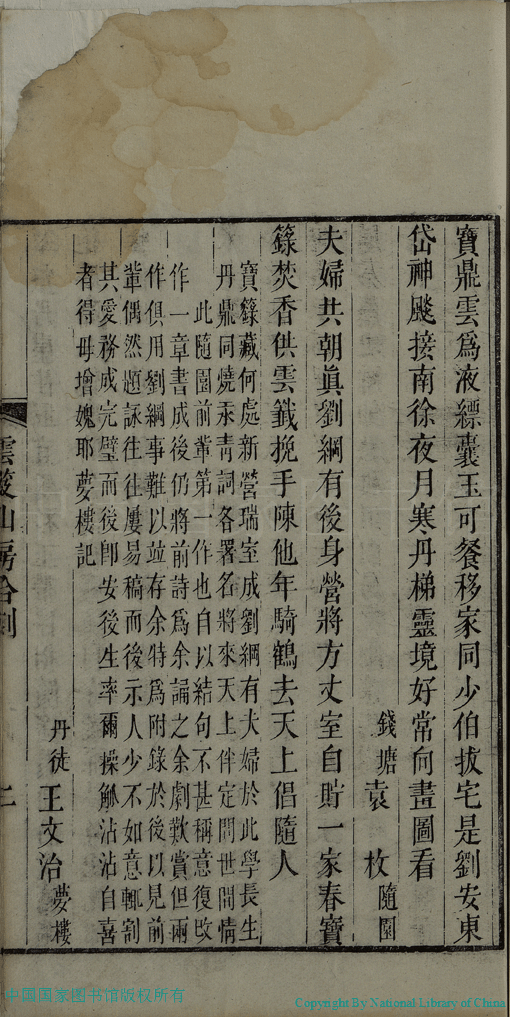 寶鼎雲爲液縹囊玉可餐移家同少伯拔宅是劉安東
岱神飈接南徐夜月寒丹梯靈境好常向畫圖看
錢塘袁枚隨園
夫婦共朝眞劉綱有後身營將方丈室自貯一家春寶
籙焚香供雲籤挽手陳他年騎鶴去天上倡隨人
寶籙藏何處新營瑞室成劉綱有夫婦於此學長生
丹鼎同燒汞靑詞各署名將來天上伴定問世間情
此隨園前輩第一作也自以結句不甚稱意復改
作一章書成後仍將前詩爲余誦之余劇歎賞但兩
作俱用劉綱事難以並存余特爲附錄於後以見前
輩偶然題詠往往屢易稿而後示人少不如意輒割
其愛務成完璧而後卽安後生率爾操觚沾沾自喜
者得毋增媿耶夢樓記
丹徒王文治夢樓
雲山房合刻
二
中国国家图书馆版权所有
Copyright By National Library of China